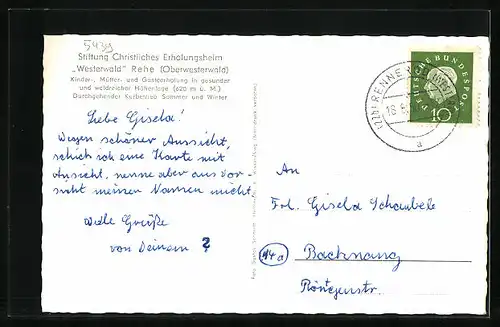 5439
Stiftung Christliches Erholungsheim
„Westerwald" Rehe (Oberwesterwald)
Kinder-, Mütter- und Gästeerholung in gesunder
und waldreicher Höhenlage (620 m ü. M.)
Durchgehender Kurbetrieb Sommer und Winter
Liebe Gisela!
Wegen schöner Aussicht,
schick ich eine Karte mit
Ansicht, nenne aber aus Vor-
sicht meinen Namen nicht.
Viele Grüße
von Deinem ?
DEUTSCHE BUNDESPOST
10
RENNEROD
a
An
Frl. Gisela Schaubele
14a Backnang
Röntgenstr.